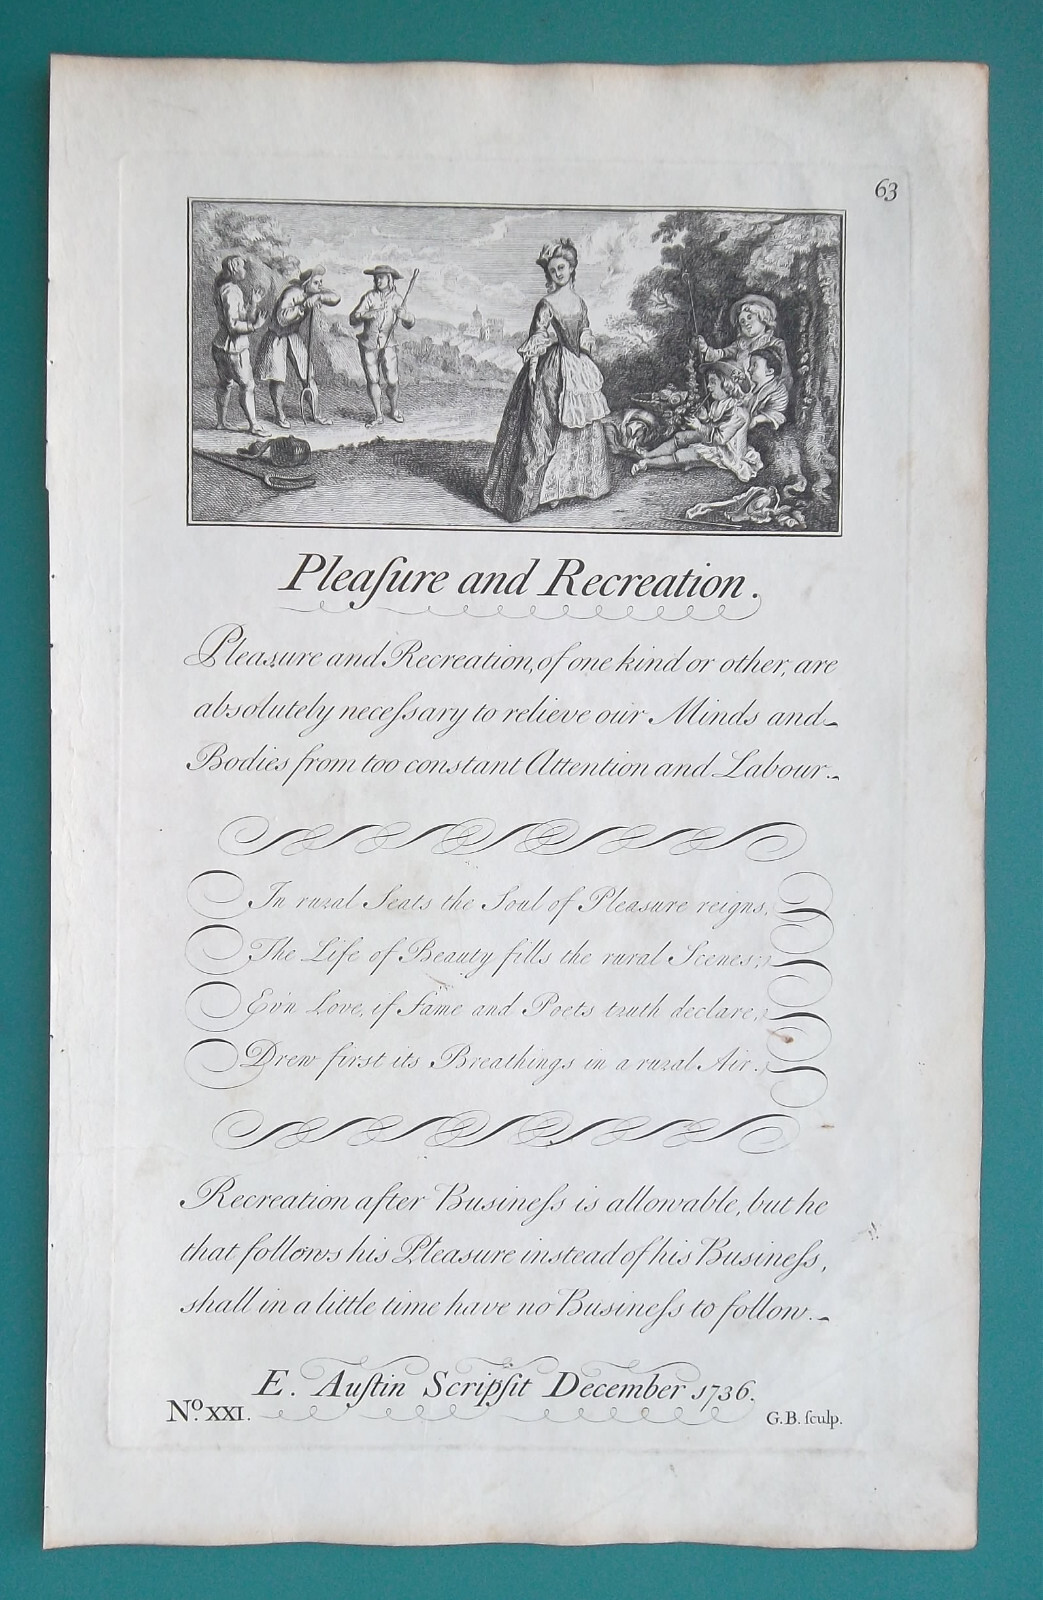 63
Pleaſure and Recreation.
Pleasure and Recreation, of one kind or other, are
absolutely neceſsary to relieve our Minds and
Bodies from too constant Attention and Labour.
In rural Seats the Soul of Pleasure reigns,
The Life of Beauty fills the rural Scenes;
Ev'n Love, if Fame and Poets truth declare,
Drew first its Breathings in a rural Air.
Recreation after Busineſs is allowable, but he
that follows his Pleasure instead of his Busineſs,
shall in a little time have no Busineſs to follow.
E. Auſtin Scripſit December 1736.
No. XXI.
G.B. ſculp.